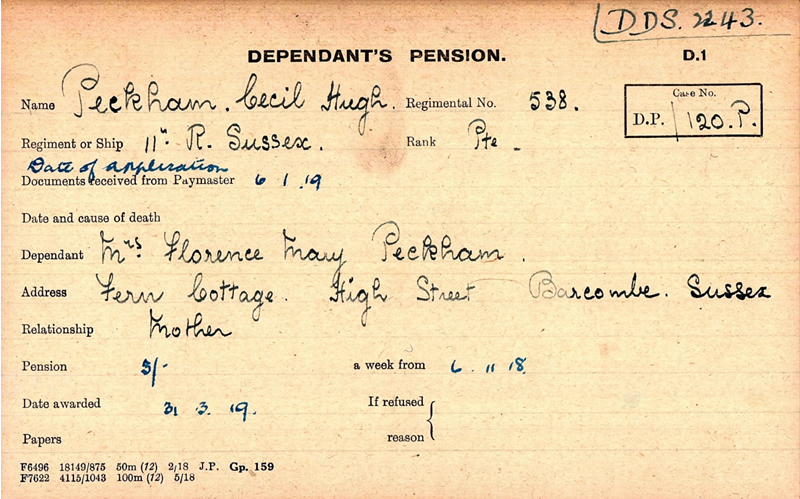 DDS. 2243.
DEPENDANT'S PENSION.
D.1
Name Peckham. Cecil Hugh. Regimental No. 538.
Case No.
D.P. 120.P.
Regiment or Ship 11th R. Sussex. Rank Pte.
Date of application
Documents received from Paymaster 6 1 .19
Date and cause of death
Dependant Mrs. Florence Mary Peckham.
Address Fern Cottage. High Street Barcombe. Sussex
Relationship Mother
Pension 5/- a week from 6. 11 18.
Date awarded 31 3. 19. If refused
Papers reason
F6496 18149/875 50m (12) 2/18 J.P. Gp. 159
F7622 4115/1043 100m (12) 5/18